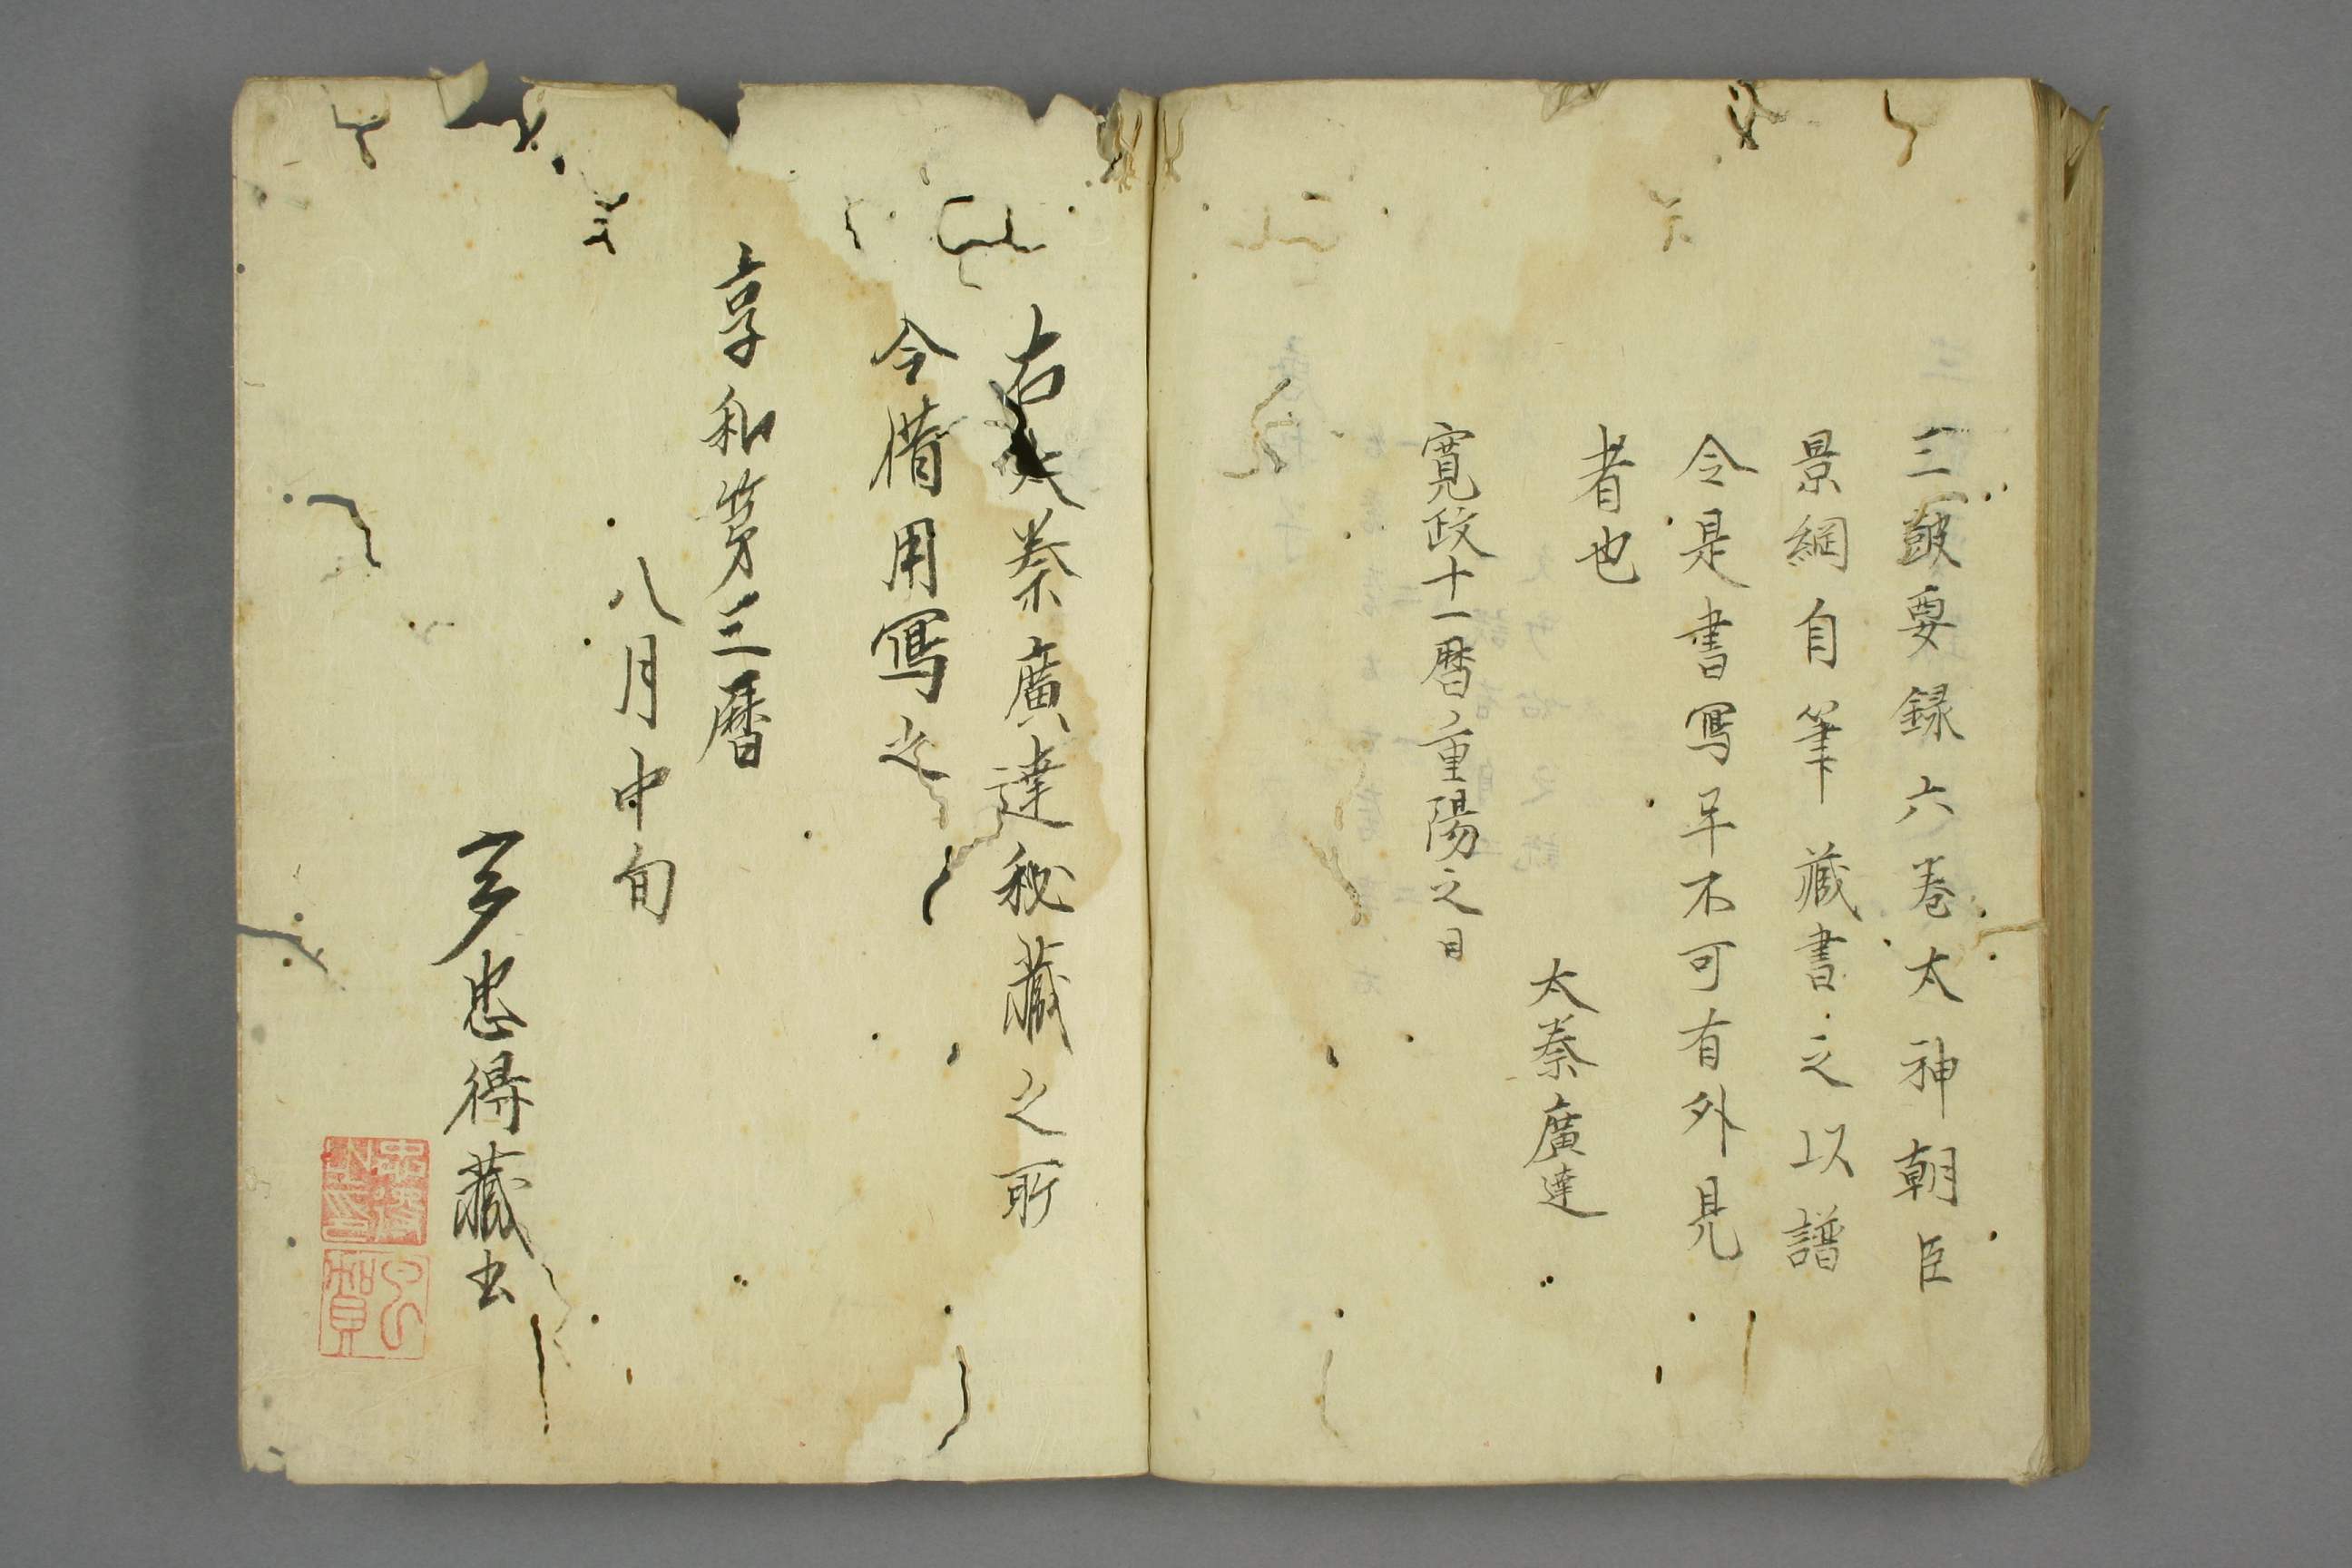 三鼓要録六巻太神朝臣
景綱自筆藏書之以譜
令是書写早不可有外見
者也
太秦廣達
寛政十一暦重陽之日
右太秦廣達秘藏之所
令借用寫之
享和第三暦
八月中旬
多忠得藏書